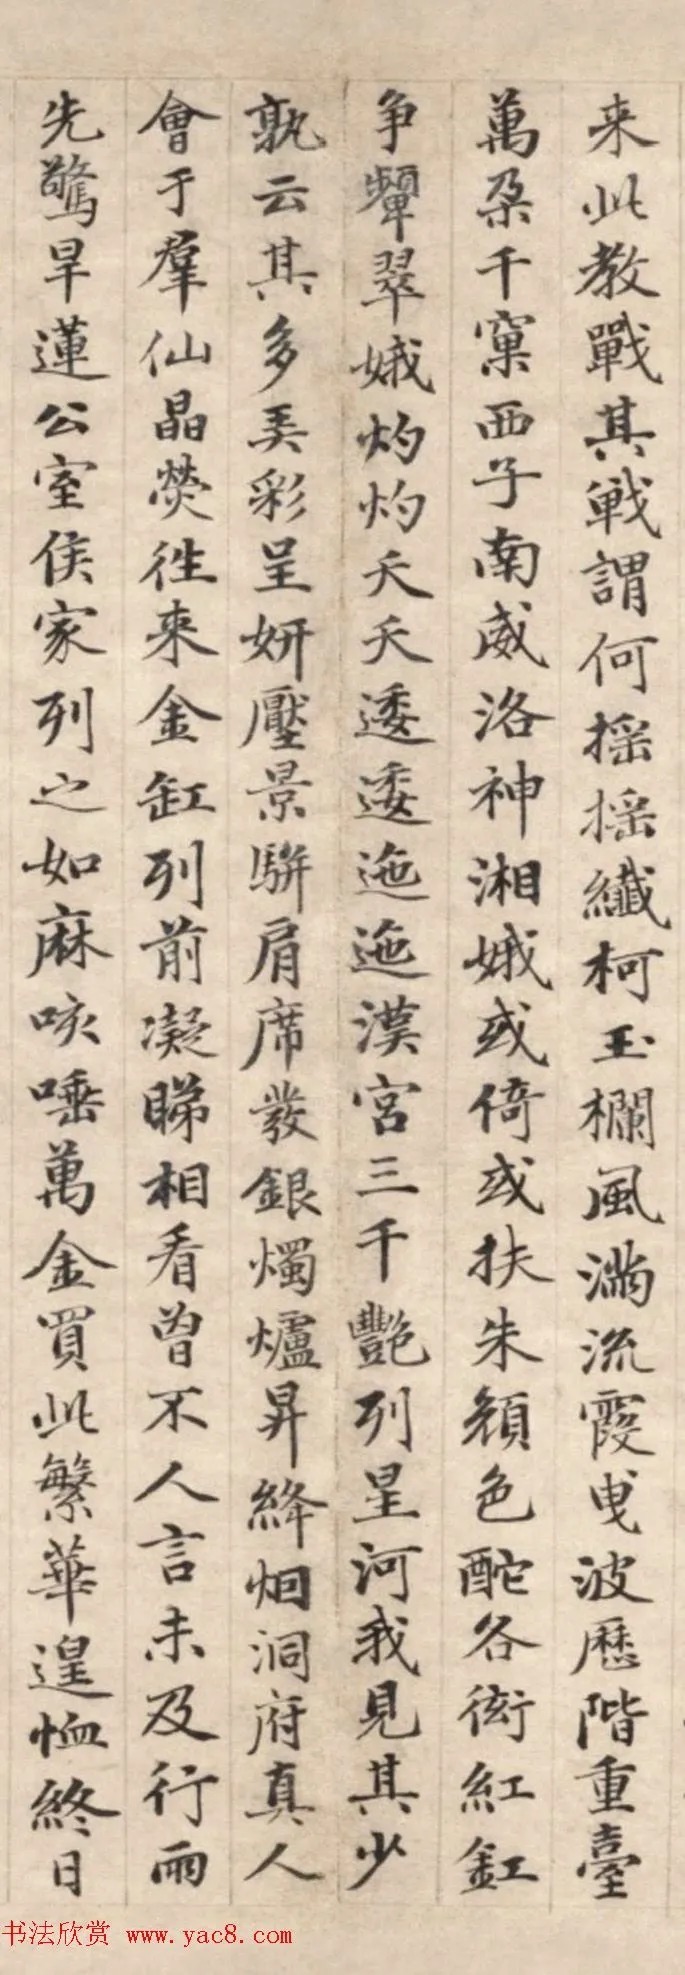 来此教戰其戰謂何摇摇纖柯玉欄風満流霞曳波歷階重臺
萬朶千窠西子南威洛神湘娥或倚或扶朱顔色酡各衒紅釭
争顰翠娥灼灼夭夭逶逶迤迤漢宮三千艷列星河我見其少
孰云其多美彩呈妍壓景駢肩席發銀燭爐昇絳烟洞府真人
會于羣仙晶熒往来金釭列前凝睇相看曾不人言未及行雨
先驚旱蓮公室侯家列之如麻咳唾萬金買此繁華遑恤終日
书法欣赏 www.yac8.com